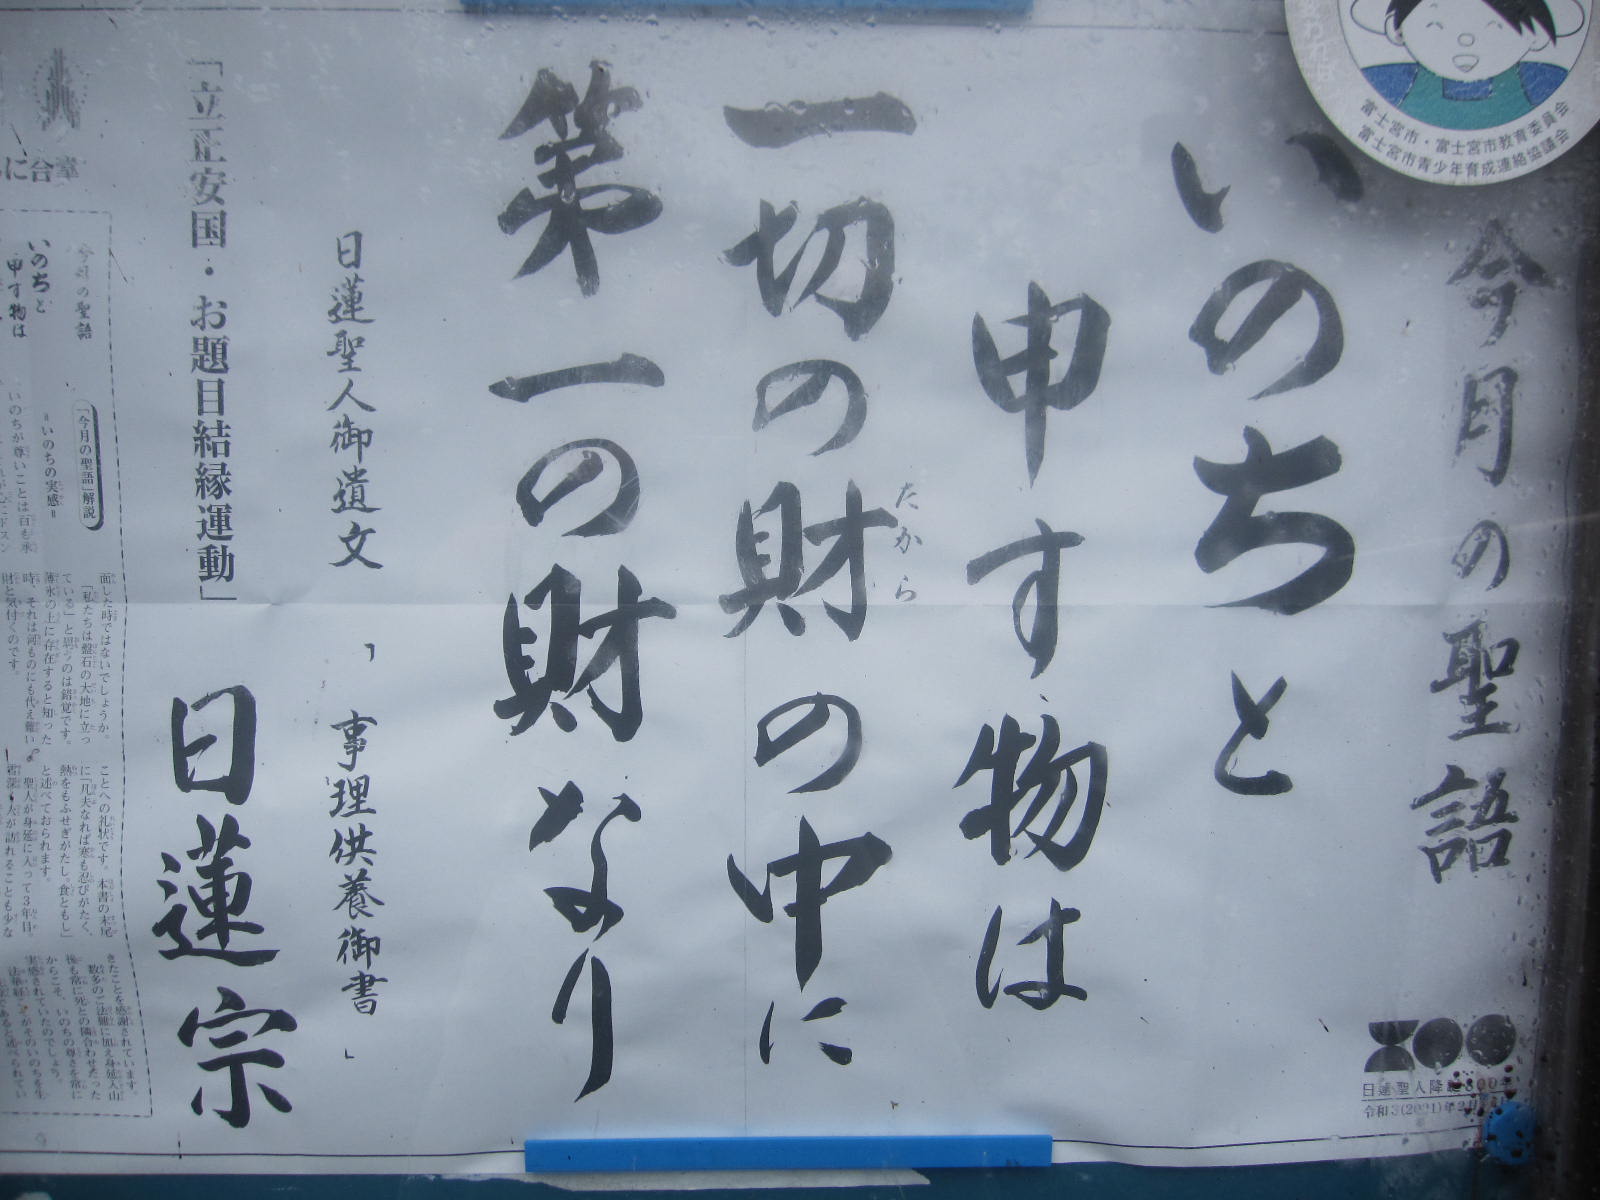 今月の聖語
いのちと
申す物は
一切の財の中に
たから
第一の財なり
日蓮聖人御遺文
「事理供養御書」
「立正安国・お題目結縁運動」
日蓮宗
富士宮市・富士宮市教育委員会
富士宮市青少年育成連絡協議会
日蓮聖人降誕800年
今月の聖語
いのちと
申す物は
「今月の聖語」解説
＝いのちの実感＝
いのちが尊いことは百も承
面した時ではないでしょうか。
「私たちは盤石の大地に立っ
ている」と思うのは錯覚です。
薄氷の上に存在すると知った
時、それは何ものにも代え難い
財と気付くのです。
ことへの礼状です。本書の末尾
に「凡夫なれば寒も忍びがたく、
熱をもふせぎがたし。食ともし」
と述べておられます。
聖人が身延に入って３年目。
雪深く人が訪れることも少な
きたことを感謝されています。
数多のご法難に加え身延入山
後も常に死と隣合わせだった
からこそ、いのちの尊さを常に
実感されていたのでしょう。